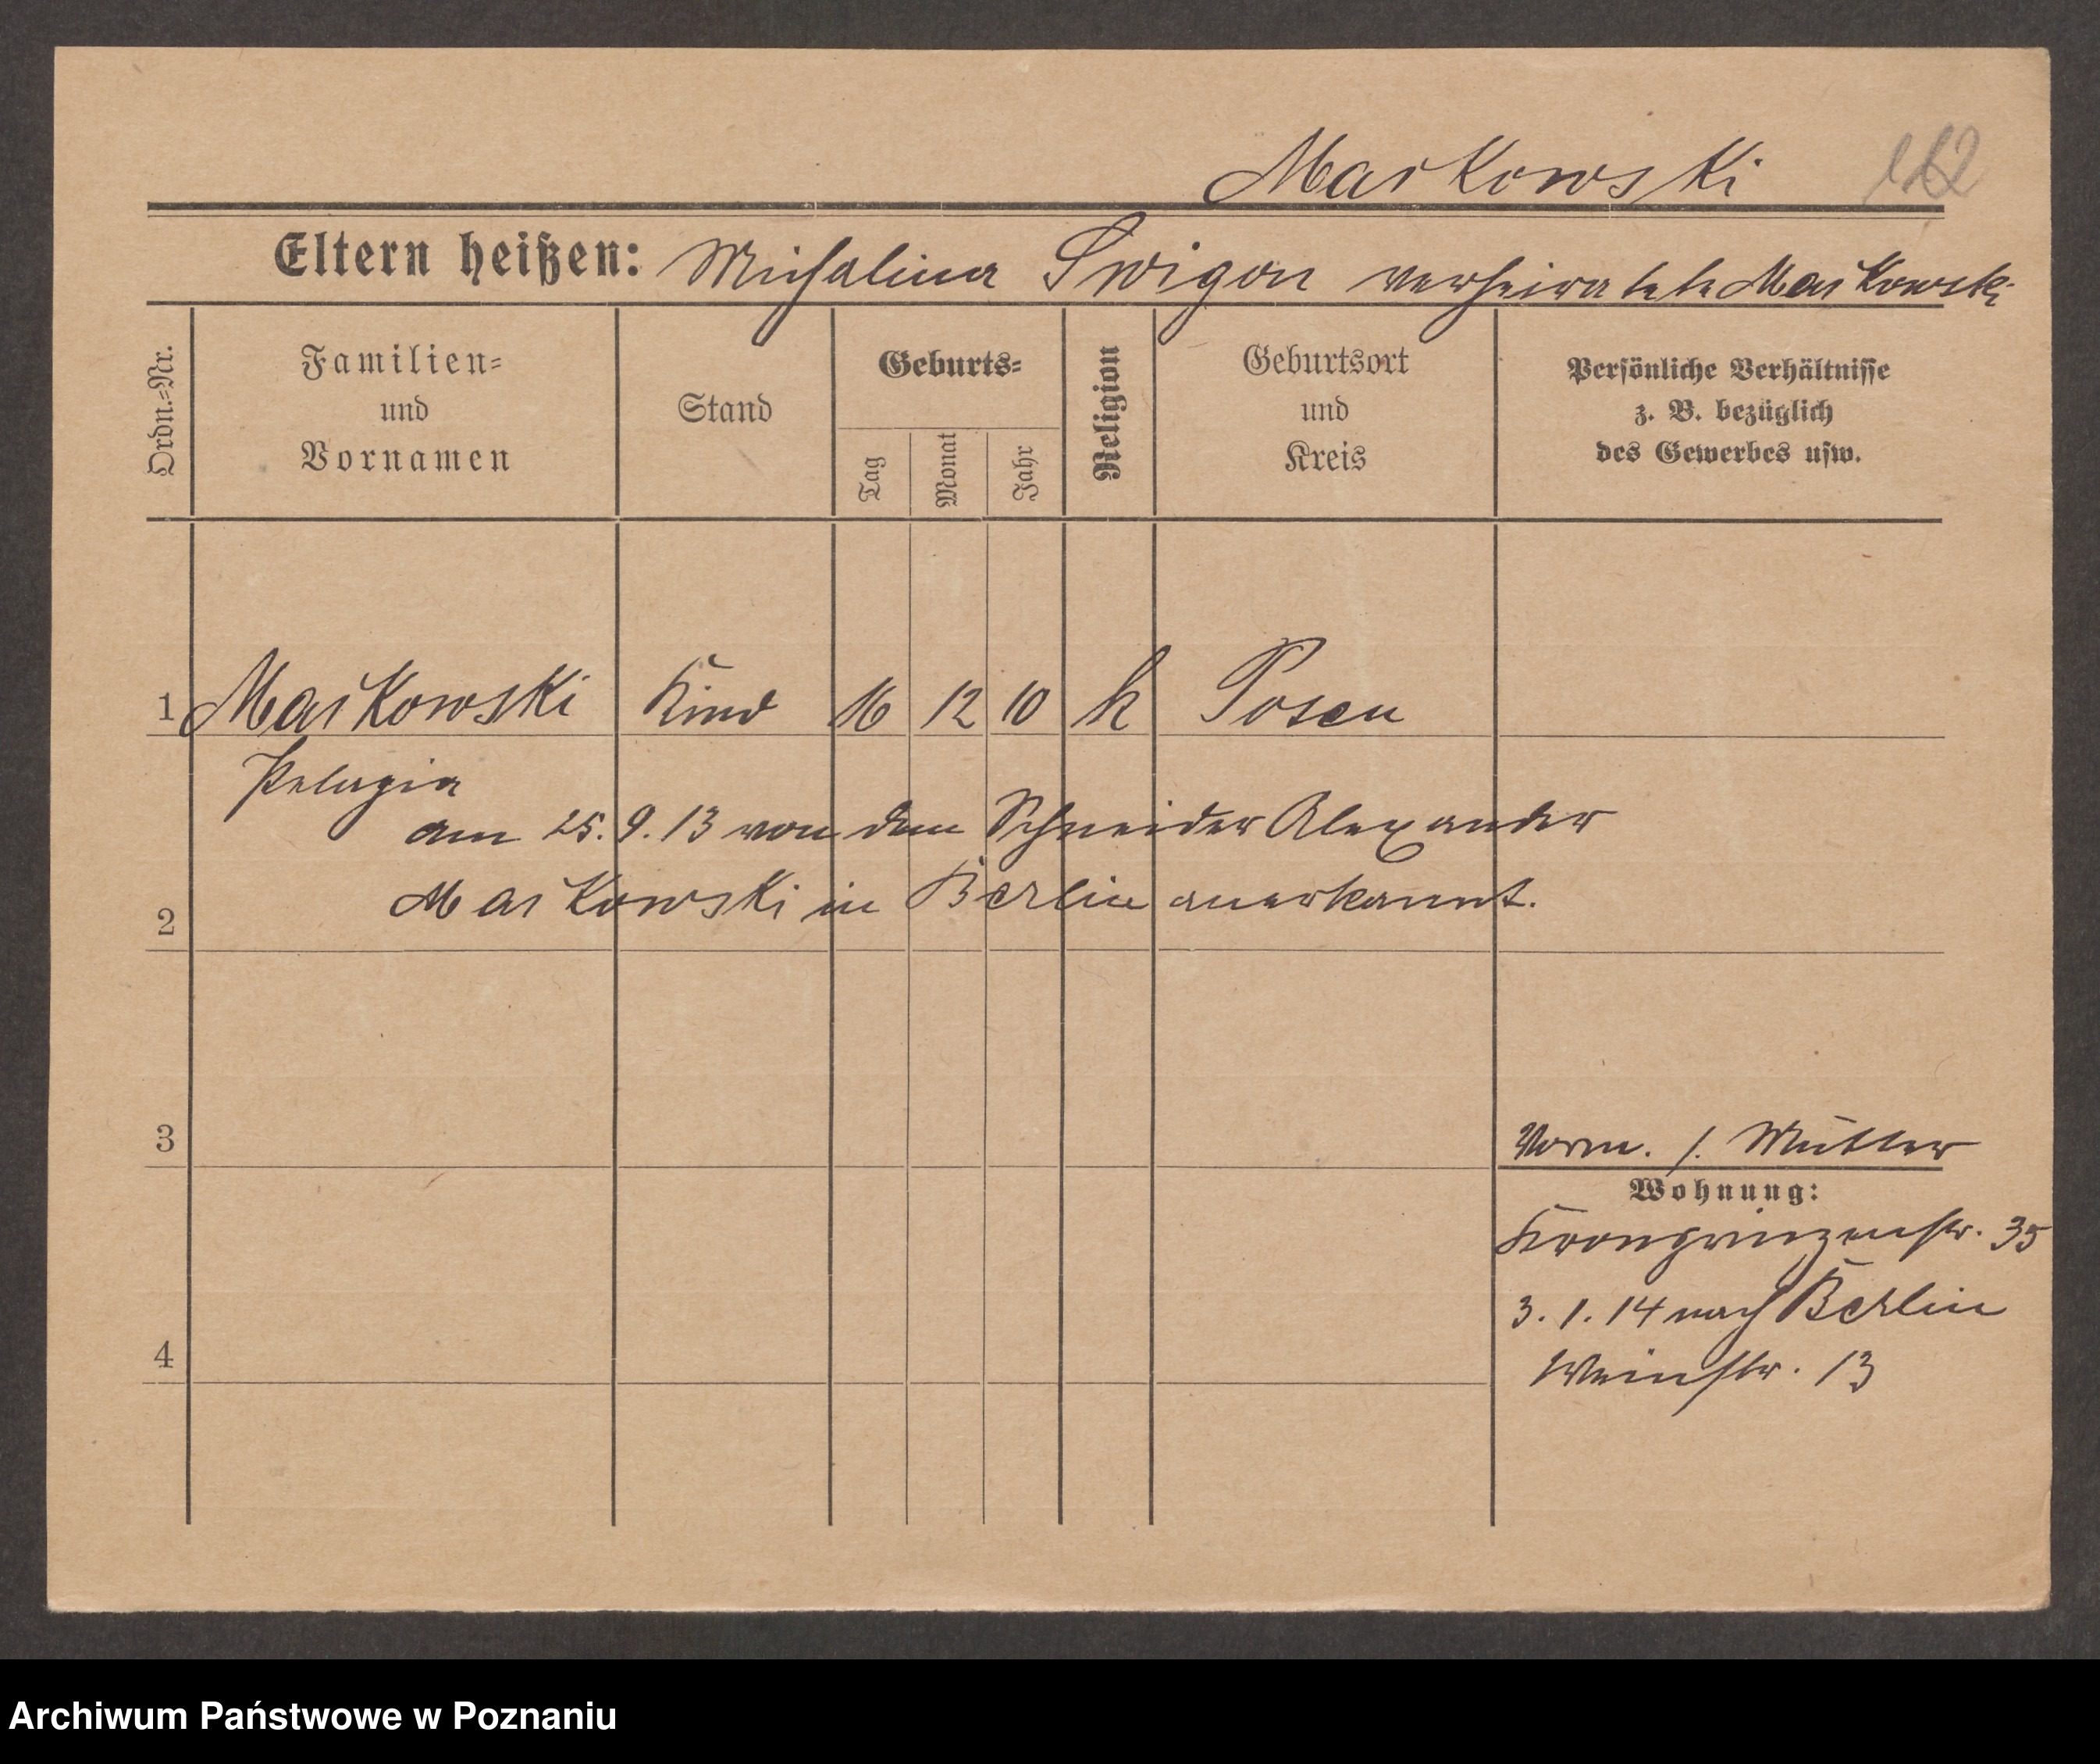 Markowski 112
Eltern heißen: Michalina Swigon verheiratete Markowski
Ordn.=Nr.
Familien=
und
Vornamen
Stand
Geburts=
Tag
Monat
Jahr
Religion
Geburtsort
und
Kreis
Persönliche Verhältnisse
z. B. bezüglich
des Gewerbes usw.
1 Markowski Kind 16 12 10 k Posen
Pelagia
am 25.9.13 von dem Schneider Alexander
2 Markowski in Berlin anerkannt.
3
Vorm. s. Mutter
Wohnung:
Kronprinzenstr. 35
3.1.14 nach Berlin
4
Weinstr. 13
Archiwum Państwowe w Poznaniu